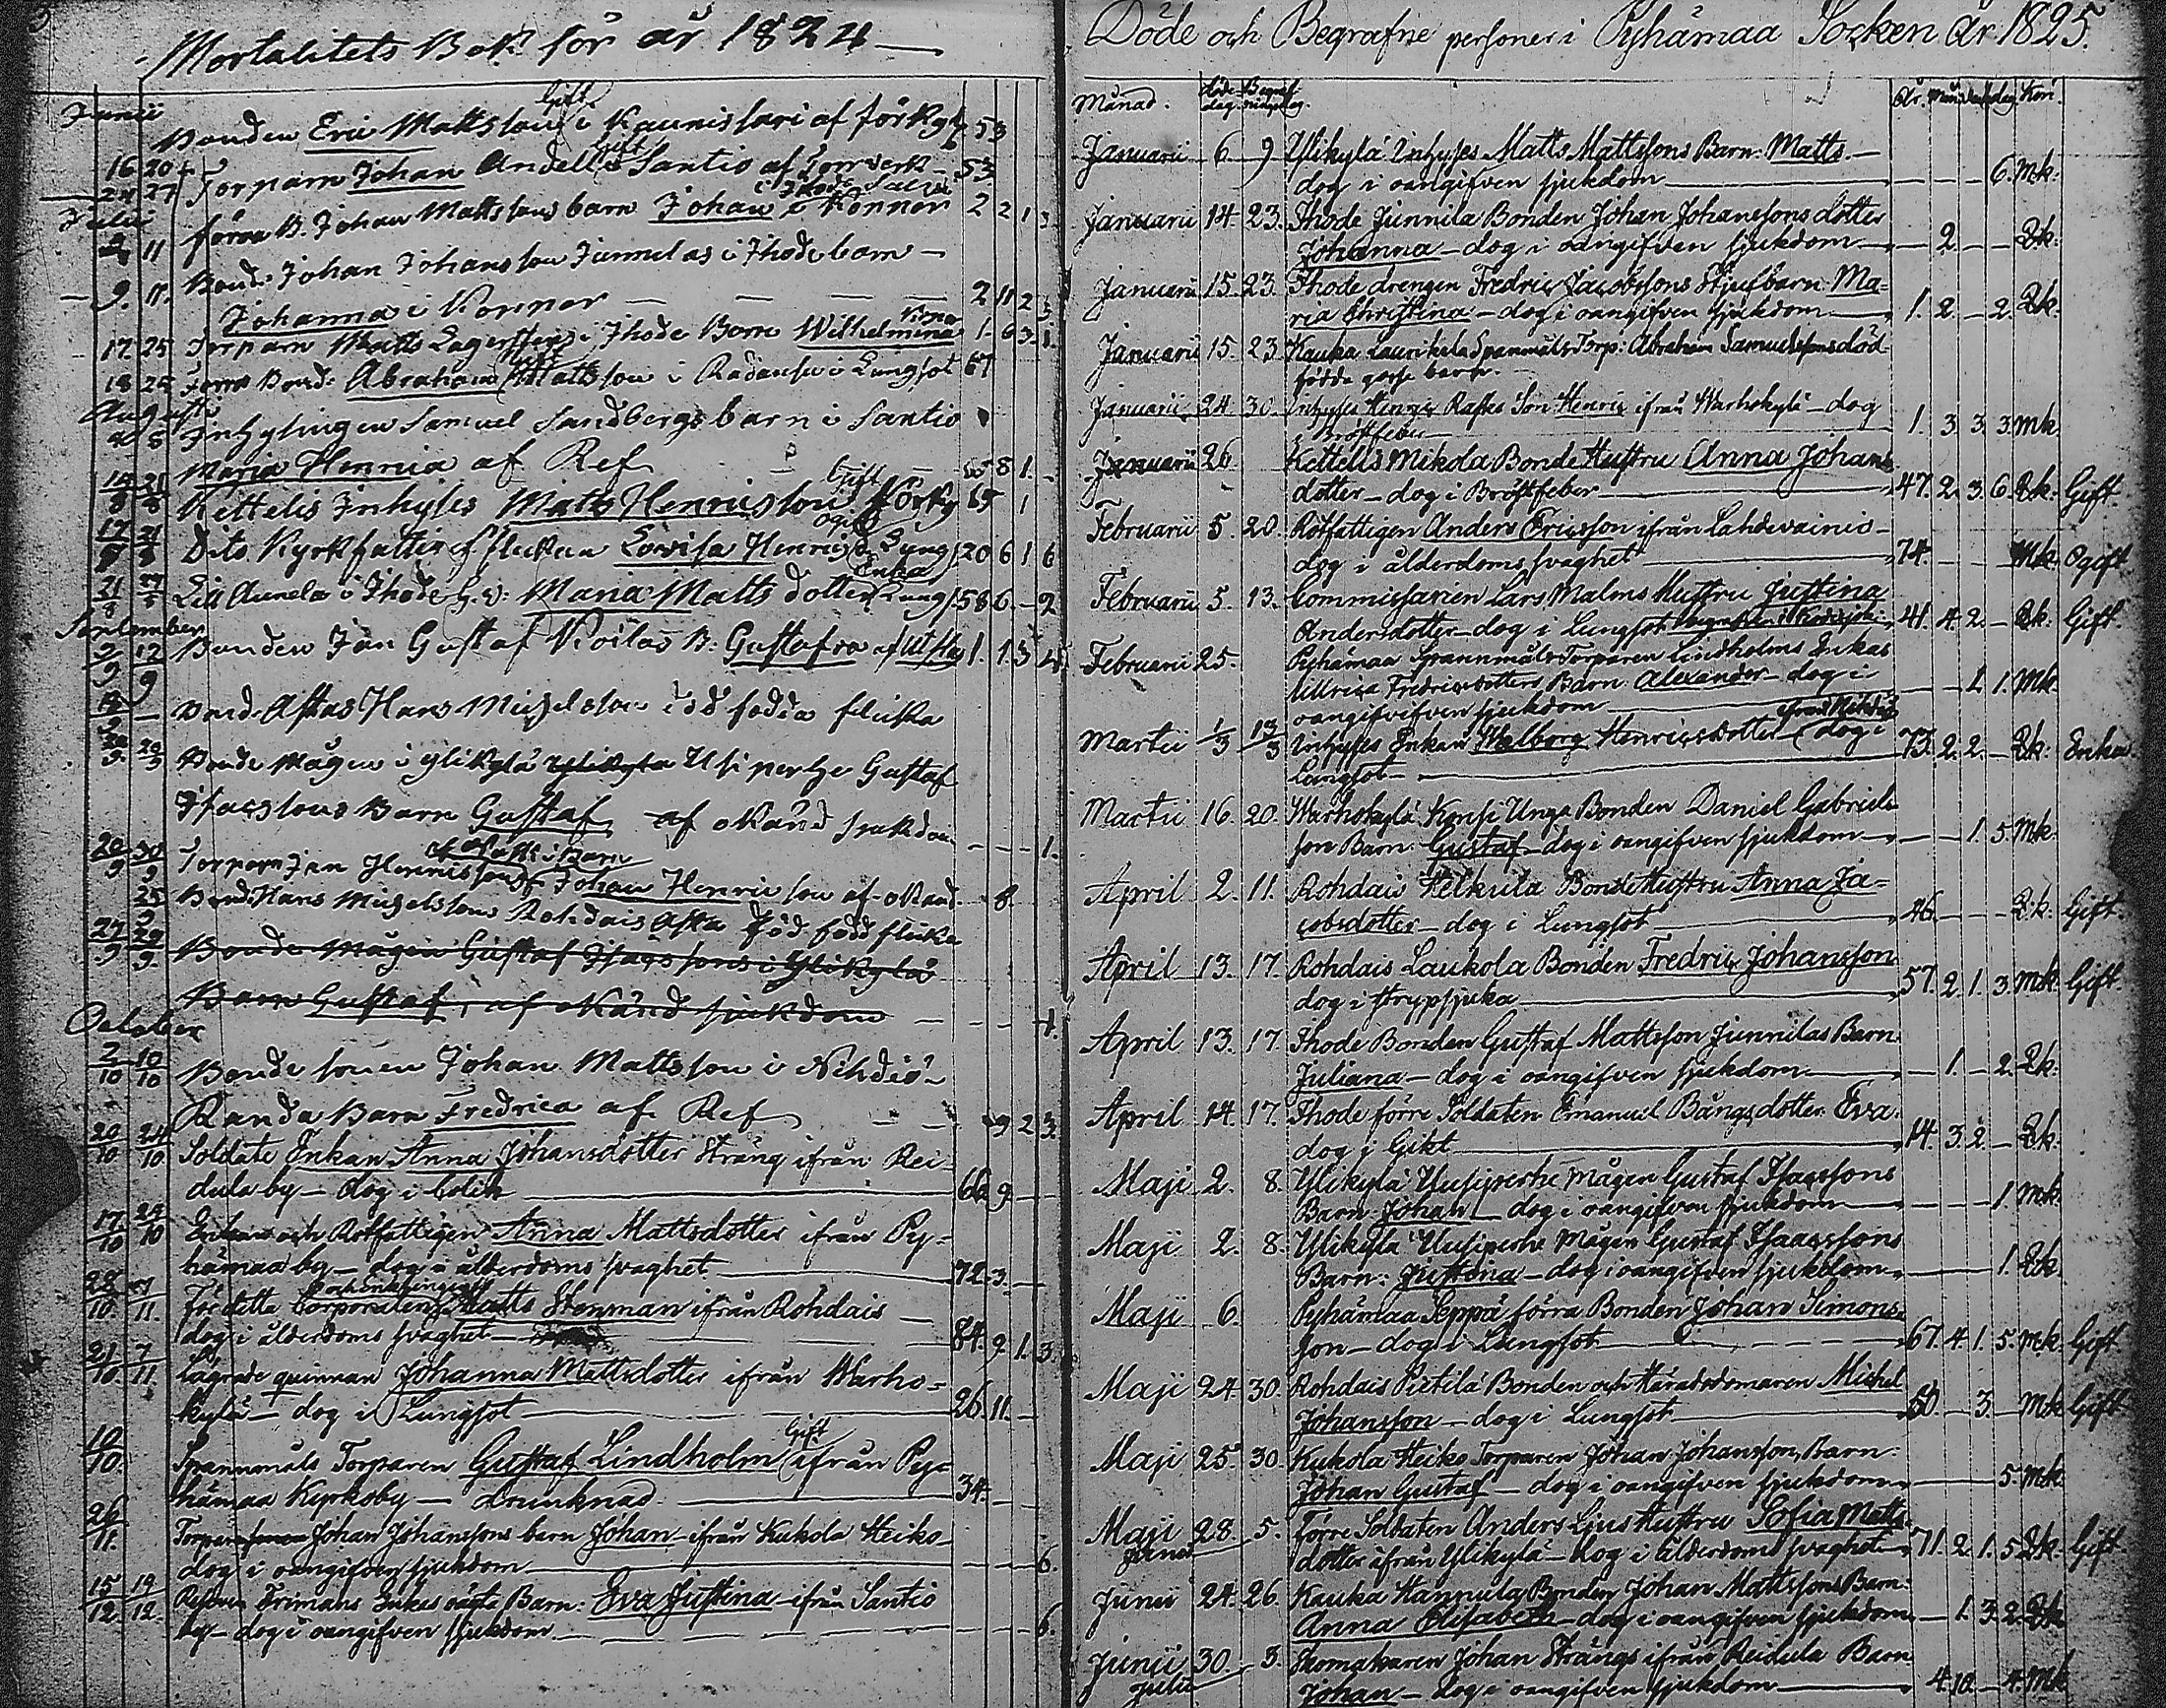 Mortalitets Bok för år 1824
Junii
Bonden Eric Mattsson i Kaunissari af Förkyl 53
Gift
16 20 Torparn Johan Andell i Santio af 53
Gift
24 27
Julii
förra B. Johan Mattssons barn Johan i Koppor 2 2 1 3
11
Bond. Johan Johansson Junnilas i Ihode barn
9. 11.
Johanna i Koppor 2 11 2 3
17 25 Torparn Matts Lagerstens i Ihode Barn Wilhelmina 1. 6 3. 1.
18 25 Förra Bond: Abraham Mattsson i i Lungsot 67
Augusti
8 Inhysingen Samuel Sandbergs barn i Santio
Maria Henrica af Ref 8 1.
14/8
Kettelis Inhyses Matts Henricsson 65 1
Gift
17/8 21/8
Dito Kyrkfattig flickan Lovisa Henricsd. Lungs. 20 6 1 6
Ogift
21/8
Lill Aunela i Ihode G. v: Maria Mattsdotter Lungs. 58 6 2
Enka
September
2/9 12/9
Bonden Jan Gustaf B: Gustafva 1. 1. 3 4
Bond. Aftas Hans Michelsson död födda flicka
Bonde Mågen i Ylikylä Ylikylä Usiperhe Gustaf
Isacssons Barn Gustaf af okänd sjukdom 1.
20/9 30/9
Torparn Jan Henricssons Johan Henricson af okänd 8.
25/9
Bond: Hans Michelssons Rohdais Afta död född flicka
27/9 29/9
Bonde Mågen Gustaf Isacssons i Ylikylä
Barn Gustaf, af okänd sjukdom 1.
October
2/10 10/10
Bonde sonen Johan Mattsson i Nihdiö
Randa Barn Fredrica af Ref 9 2 3.
20/10 24/10
Soldate Enkan Anna Johansdotter Sträng ifrån Rei-
dula by — dog i colik 66 9
17/10 24/10
Enkan och Rotfattigen Anna Mattsdotter ifrån Py-
hämaa by — dog i ålderdoms svaghet 72. 3.
28/10 7/11.
För detta Corporalen Matts Stenman ifrån Rohdais
dog i ålderdoms svaghet 84. 9. 1. 3.
21/10 7/11.
Lägrade quinnan Johanna Mattsdotter ifrån Warho-
kylä — dog i Lungsot 26. 11.
10/10.
Spannmåls Torparen Gustaf Lindholm ifrån Py-
Gift
hämaa Kyrkoby — drunknad. 34.
26/11.
Torparesonen Johan Johanssons barn Johan ifrån Kukola Heiko
dog i oangifven sjukdom 6.
15/12 19/12.
Frimans Enkas oägta Barn: Eva Justina ifrån Santio
by — dog i oangifven sjukdom 6.
Döde och Begrafne personer i Pyhämaa Socken År 1825.
Månad. döde dag. Begrafningsdag. År. Mån. dag. Kön.
Januarii 6 9 Ylikylä Inhyses Matts Mattssons Barn: Matts —
dog i oangifven sjukdom 6. Mk.
Januarii 14. 23. Ihode Junnila Bonden Johan Johanssons dotter
Johanna — dog i oangifven sjukdom 2. Qk.
Januarii 15. 23. Ihode drengen Fredric Jacobssons Stjufbarn: Ma-
ria Christina — dog i oangifven sjukdom 1. 2. — 2. Qk.
Januarii 15. 23. Kauka Laurikela Spanmåls Torp: Abraham Samuelssons död
födda gosse barn.
Januarii 24. 30. Inhyses Henric Rasks Son Henric ifrån Warhokylä — dog
i Bröstfeber 1. 3. 3. 3. Mk.
Januarii 26. Kettelis Mikola Bonde Hustru Anna Johans-
dotter — dog i Bröstfeber 47. 2. 3. 6. Qk. Gift.
Februarii 5. 20. Rotfattigen Anders Ericsson ifrån Lahdevainio
dog i ålderdoms svaghet 74. Mk. Ogift
Februarii 5. 13. Commissarien Lars Malms Hustru Justina
Andersdotter — dog i Lungsot 41. 4. 2. — Qk. Gift.
Februarii 25. Pyhämaa Spannmåls Torparen Lindholms Enkas
Ulrica Fredricsdotters Barn: Alexander — dog i
oangifvifven sjukdom 1. 1. Mk.
Martii 1/3 13/3 Inhyses Enkan Walborg Henricsdotter — dog i
Lungsot 73. 2. 2. — Qk. Enka
Martii 16. 20. Warhokylä Konsi Unga Bonden Daniel Gabriels-
son Barn: Gustaf — dog i oangifven sjukdom 1. 5. Mk.
April 2. 11. Rohdais Helkula Bonde Hustru Anna Ja-
cobsdotter — dog i Lungsot 46. Qk. Gift.
April 13. 17. Rohdais Laukola Bonden Fredric Johansson
dog i strypsjuka 57. 2. 1. 3. Mk. Gift.
April 13. 17. Ihode Bonden Gustaf Mattsson Junnilas Barn
Juliana — dog i oangifven sjukdom 1. — 2. Qk.
April 14. 17. Ihode förre Soldaten Emanuel Bångs dotter Eva.
dog i Gikt 14. 3. 2. — Qk.
Maji 2. 8. Ylikylä Uusiperhe mågen Gustaf Isacssons
Barn: Johan — dog i oangifven sjukdom 1. Mk.
Maji 2. 8. Ylikylä Uusiperhe mågen Gustaf Isaacssons
Barn: Justina — dog i oangifven sjukdom 1. Qk.
Maji 6. Pyhämaa Seppä förra Bonden Johan Simons-
son — dog i Lungsot 67. 4. 1. 5. Mk. Gift.
Maji 24. 30. Rohdais Pietilä Bonden och Häradsdomaren Michel
Johansson — dog i Lungsot 50. — 3. — Mk. Gift.
Maji 25. 30. Kukola Heiko Torparen Johan Johansson, Barn:
Johan Gustaf — dog i oangifven sjukdom 5. Mk.
Maji 28. Junii 5. Förre Soldaten Anders Ljus Hustru Sofia Matts-
dotter ifrån Ylikylä — dog i ålderdoms svaghet 71. 2. 1. 5. Qk. Gift.
Junii 24. 26. Kauka Hannula Bonden Johan Mattssons Barn:
Anna Elisabeth — dog i oangifven sjukdom 1. 3. 2. Qk.
Junii 30. Julii 3. Skomakaren Johan Strängs ifrån Reidula Barn
Johan — dog i oangifven sjukdom 4. 10. — 4. Mk.